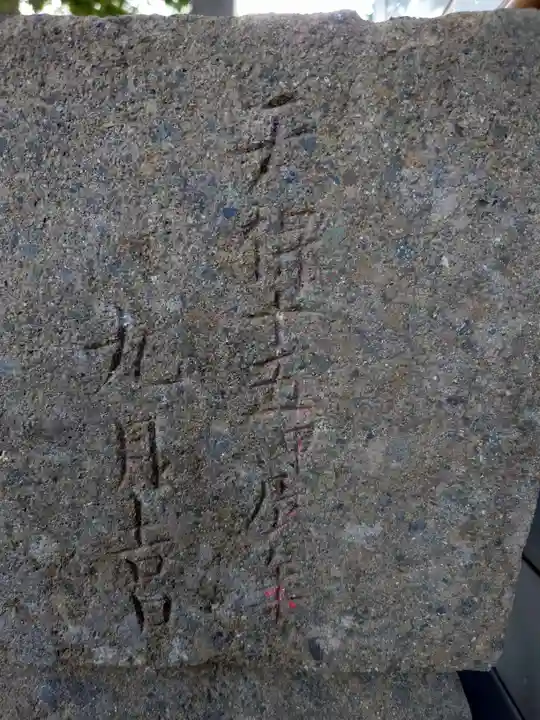 天保十五甲辰年
九月吉日